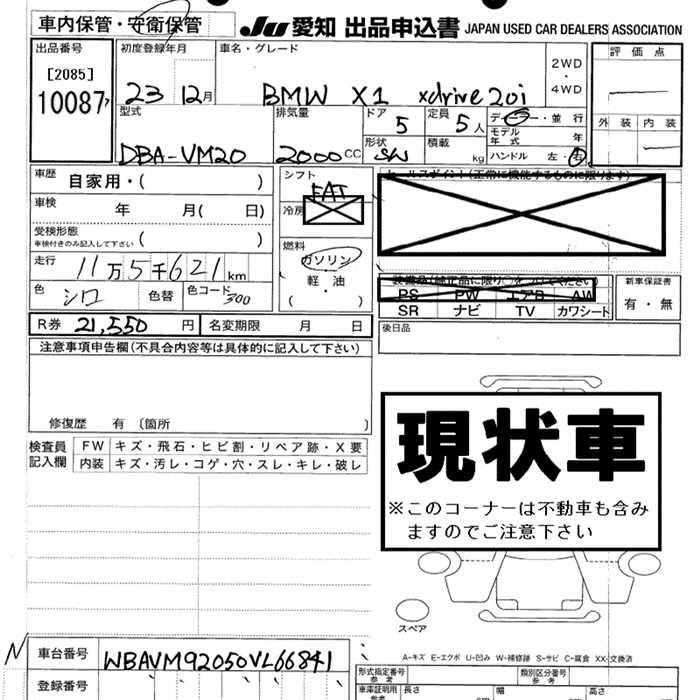 車内保管・守衛保管 JU 愛知 出品申込書 JAPAN USED CAR DEALERS ASSOCIATION
出品番号 初度登録年月 車名・グレード 評価点
[2085] 23 12月 BMW X1 xdrive20i 2WD・4WD
10087
型式 排気量 ドア 定員 ディーラー・並行 外装 内装
5 5人 モデル年式 年
DBA-VM20 2000CC 形状 SW 積載 kg ハンドル 左・右
車歴 自家用・( ) シフト FAT
車検 年 月( 日) 冷房
受検形態
車検付きのみ記入して下さい ( )
燃料
走行 11万5千621km ガソリン
色 シロ 色替 色コード 300 軽油
( )
装備品(純正品に限り○をつけてください) 新車保証書
PS PW エアB AW 有・無
SR ナビ TV カワシート
R券 21,550円 名変期限 月 日 後日品
注意事項申告欄(不具合内容等は具体的に記入して下さい)
修復歴 有 〔箇所 〕
現状車
※このコーナーは不動車も含み
ますのでご注意下さい
検査員記入欄 FW キズ・飛石・ヒビ割・リペア跡・X要
内装 キズ・汚レ・コゲ・穴・スレ・キレ・破レ
スペア
N 車台番号 WBAVM92050VL66841
A-キズ E-エクボ U-凹み W-補修跡 S-サビ C-腐食 XX-交換済
登録番号 形式指定番号 参考 類別区分番号 参考
車庫証明用 参考 長さ 幅 高さ